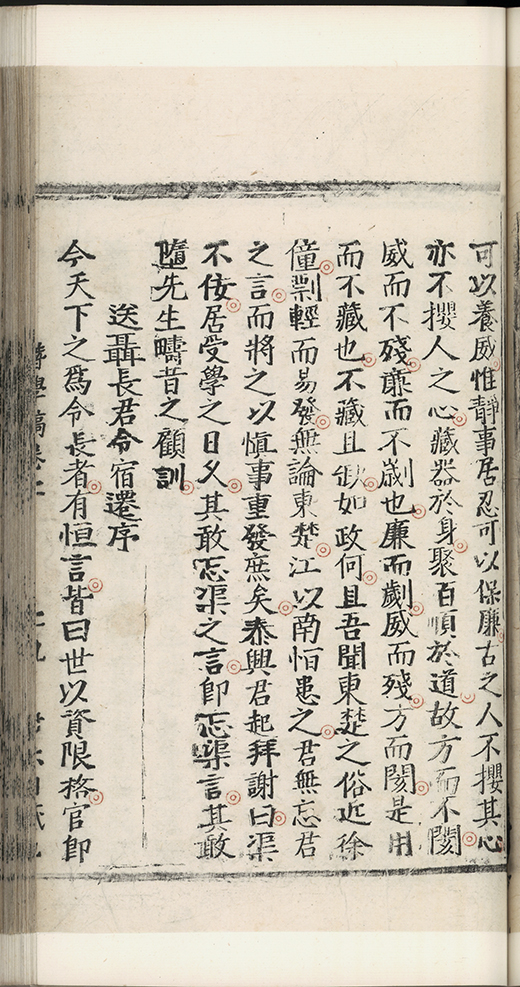 可以養威惟靜事居忍可以保廉古之人不攖其心
亦不攖人之心藏器於身聚百順於道故方而不閡
威而不殘廉而不劌也廉而劌威而殘方而閡是用
而不藏也不藏且缺如政何且吾聞東楚之俗近徐
僮剽輕而易發無論東楚江以南恒患之君無忘君
之言而將之以慎事重發庶矣泰興君起拜謝曰渠
不佞居受學之日久其敢忘渠之言即忘渠言其敢
墮先生疇昔之顧訓
送聶長君令宿遷序
今天下之為令長者有恒言皆曰世以資限格官即
學稿卷